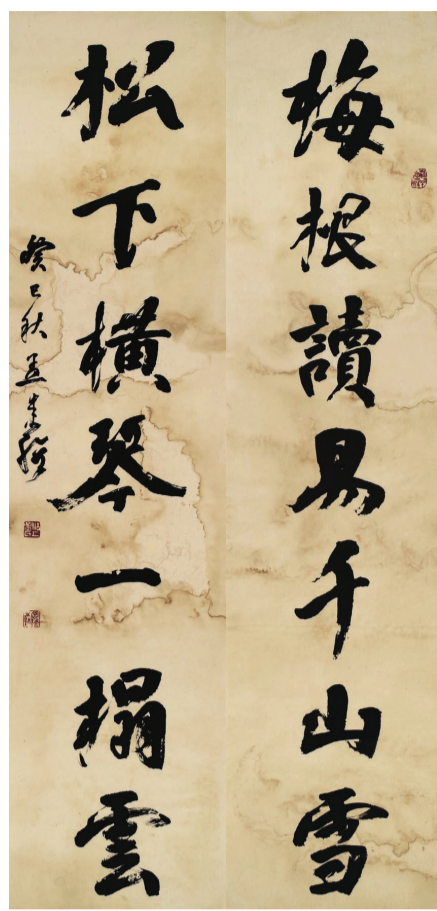 梅根讀易千山雪
松下橫琴一榻雲
癸巳秋孟